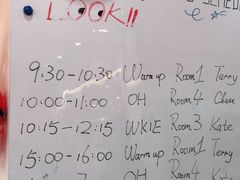 LOOK!!
9:30-10:30 Warm up Room1 Terry
10:00-11:00 OH Room4 Chase
10:15-12:15 WKIE Room3 Kate
15:00-16:00 Warm up Room1 Terry
OH Room4 Kate